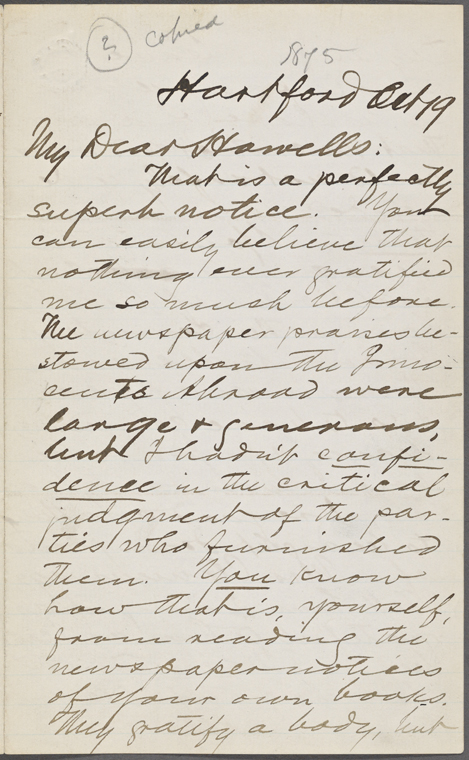 ? copied
1875
Hartford Oct 19
My Dear Howells:
That is a perfectly
superb notice. You
can easily believe that
nothing ever gratified
me so much before.
The newspaper praises be-
stowed upon the Inno-
cents Abroad were
large & generous,
but I hadn't confi-
dence in the critical
judgment of the par-
ties who furnished
them. You know
how that is, yourself,
from reading the
newspaper notices
of your own books.
They gratify a body, but